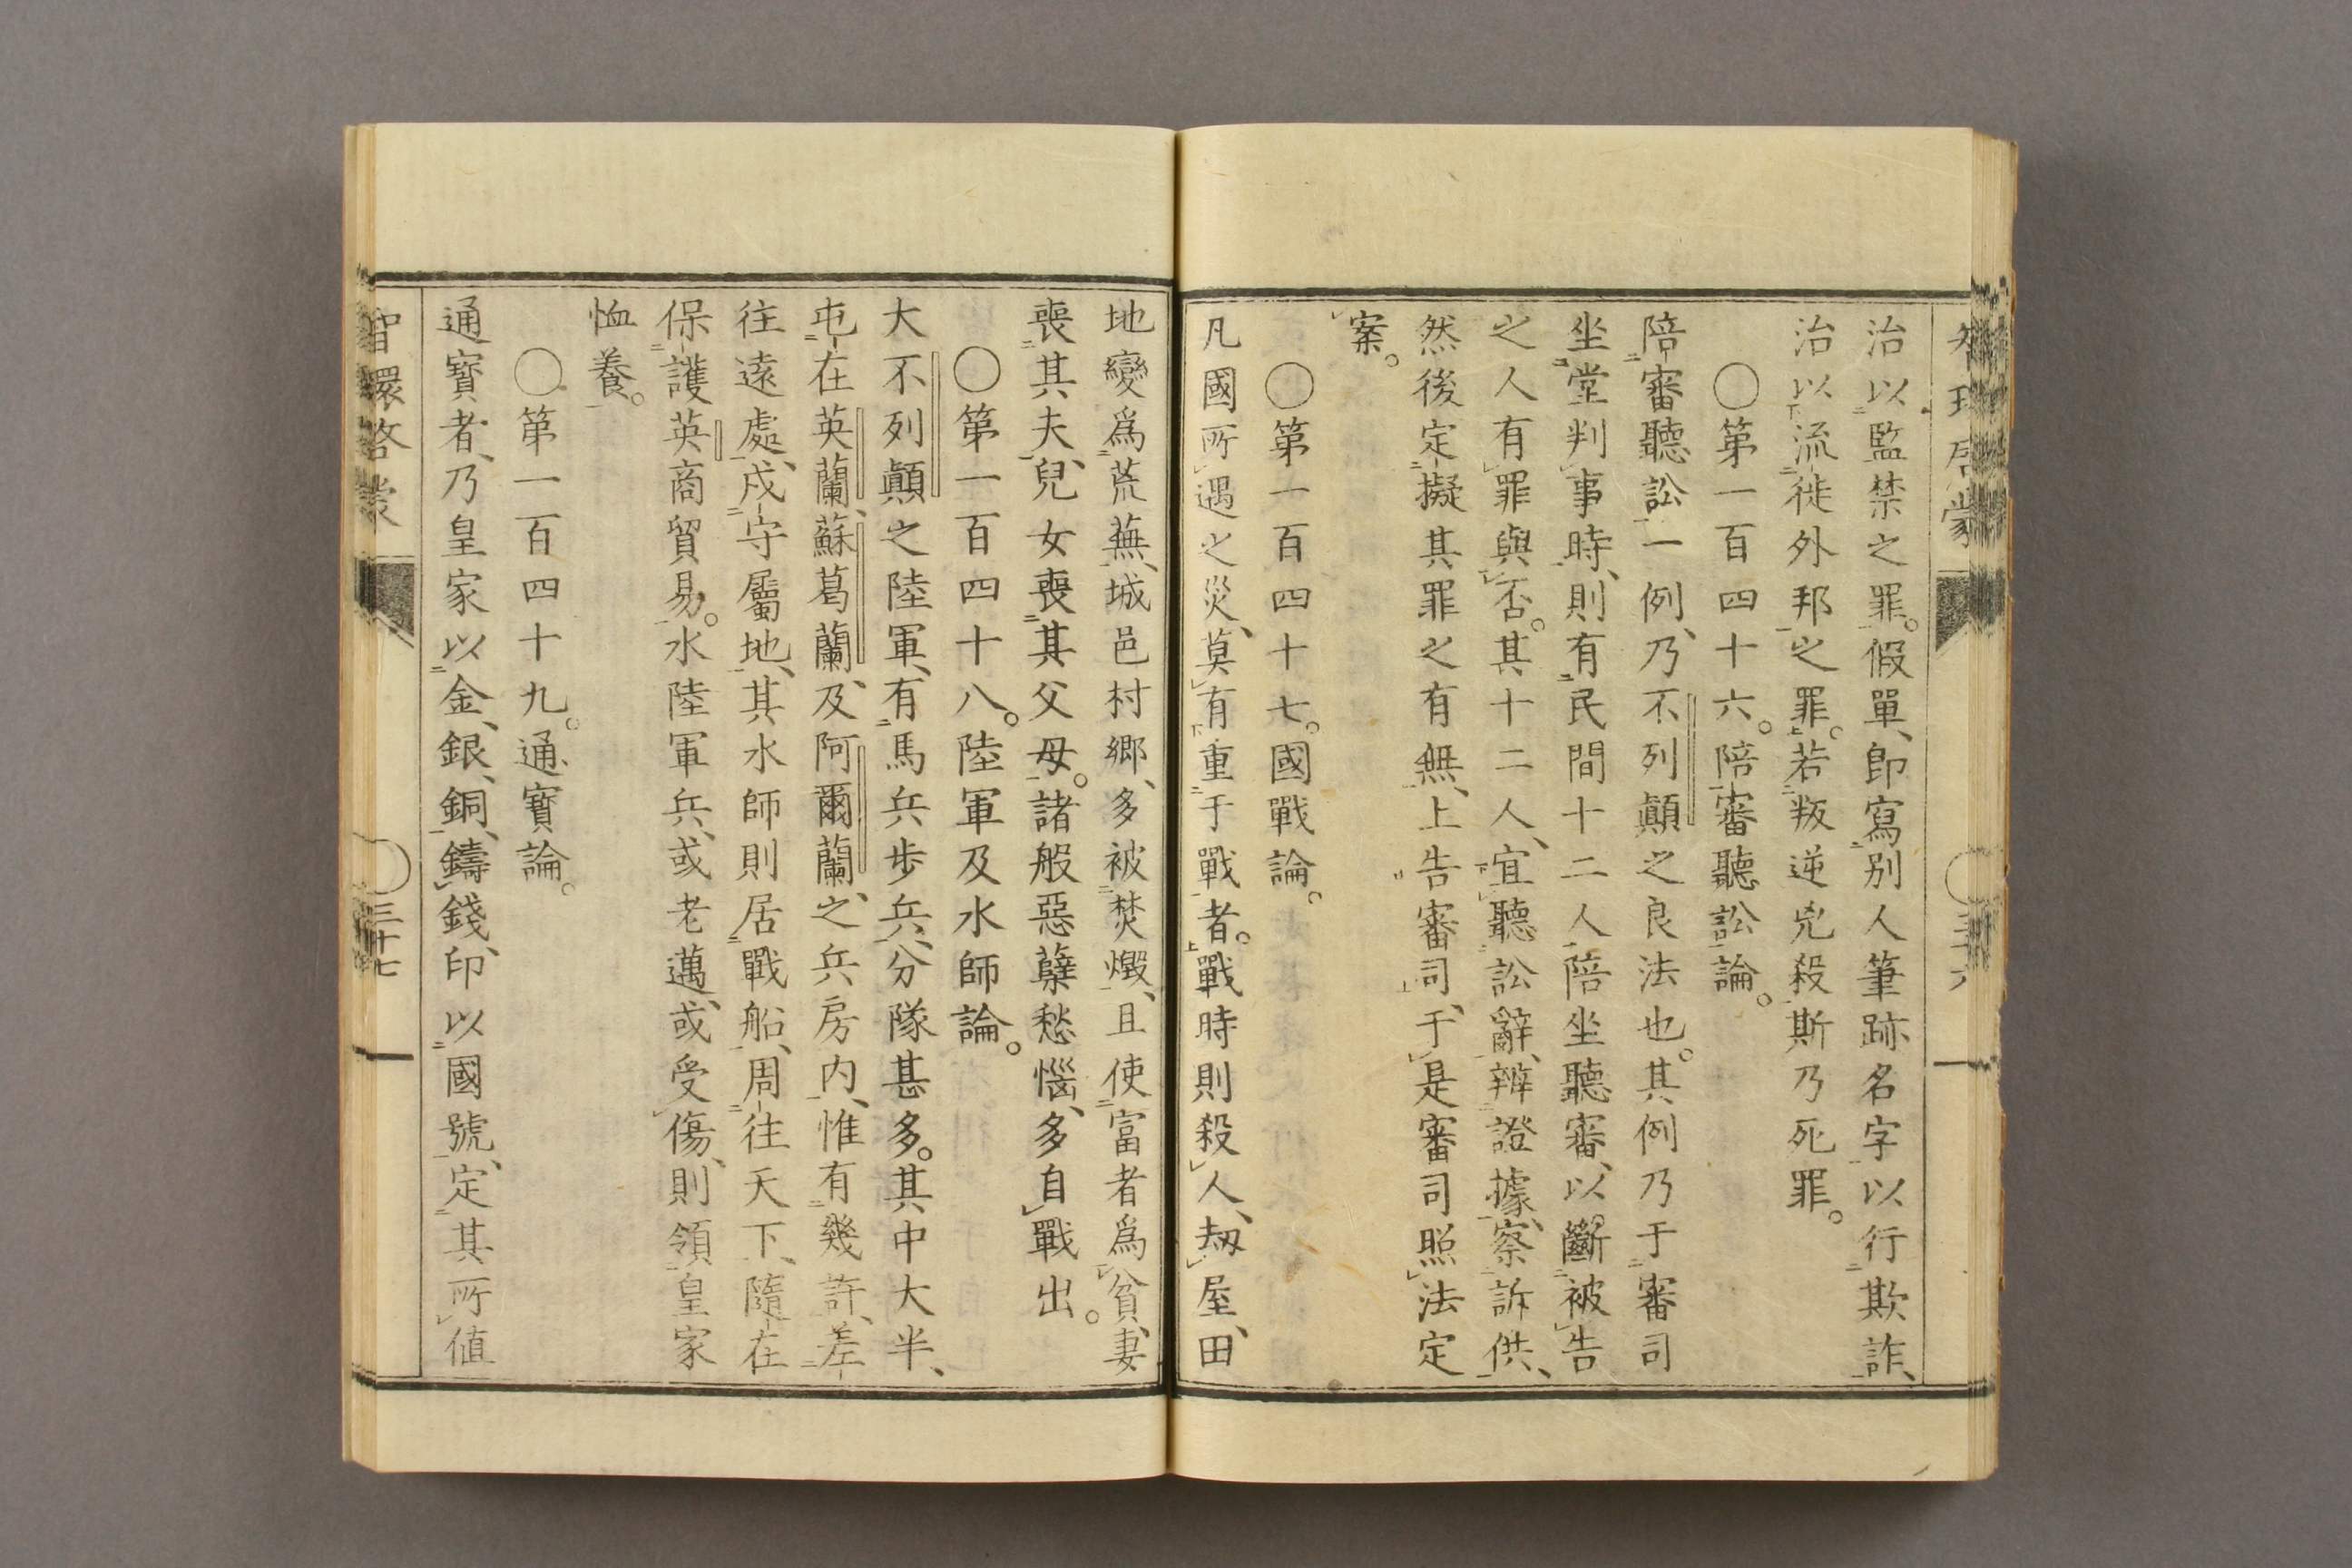 治以監禁之罪。假單、卽寫別人筆跡名字以行欺詐、
治以流徙外邦之罪。若叛逆兇殺斯乃死罪。
〇第一百四十六。陪審聽訟論。
陪審聽訟一例、乃不列顛之良法也。其例乃于審司
坐堂判事時、則有民間十二人陪坐聽審、以斷被告
之人有罪與否。其十二人、宜聽訟辭、辨證據、察訴供、
然後定擬其罪之有無、上告審司、于是審司照法定
案。
〇第一百四十七。國戰論。
凡國所遇之災、莫有重于戰者。戰時則殺人、劫屋、田
地變爲荒蕪、城邑村鄉、多被焚燬、且使富者爲貧、妻
喪其夫、兒女喪其父母。諸般惡孽愁惱、多自戰出。
〇第一百四十八。陸軍及水師論。
大不列顛之陸軍、有馬兵步兵、分隊甚多。其中大半、
屯在英蘭、蘇葛蘭、及阿爾蘭、之兵房内、惟有幾許、差
往遠處、戍守屬地、其水師則居戰船、周往天下、隨在
保護英商貿易。水陸軍兵、或老邁、或受傷、則領皇家
恤養。
〇第一百四十九。通寶論。
通寶者、乃皇家以金、銀、銅、鑄錢、印以國號、定其所値
智環啓蒙
三十七